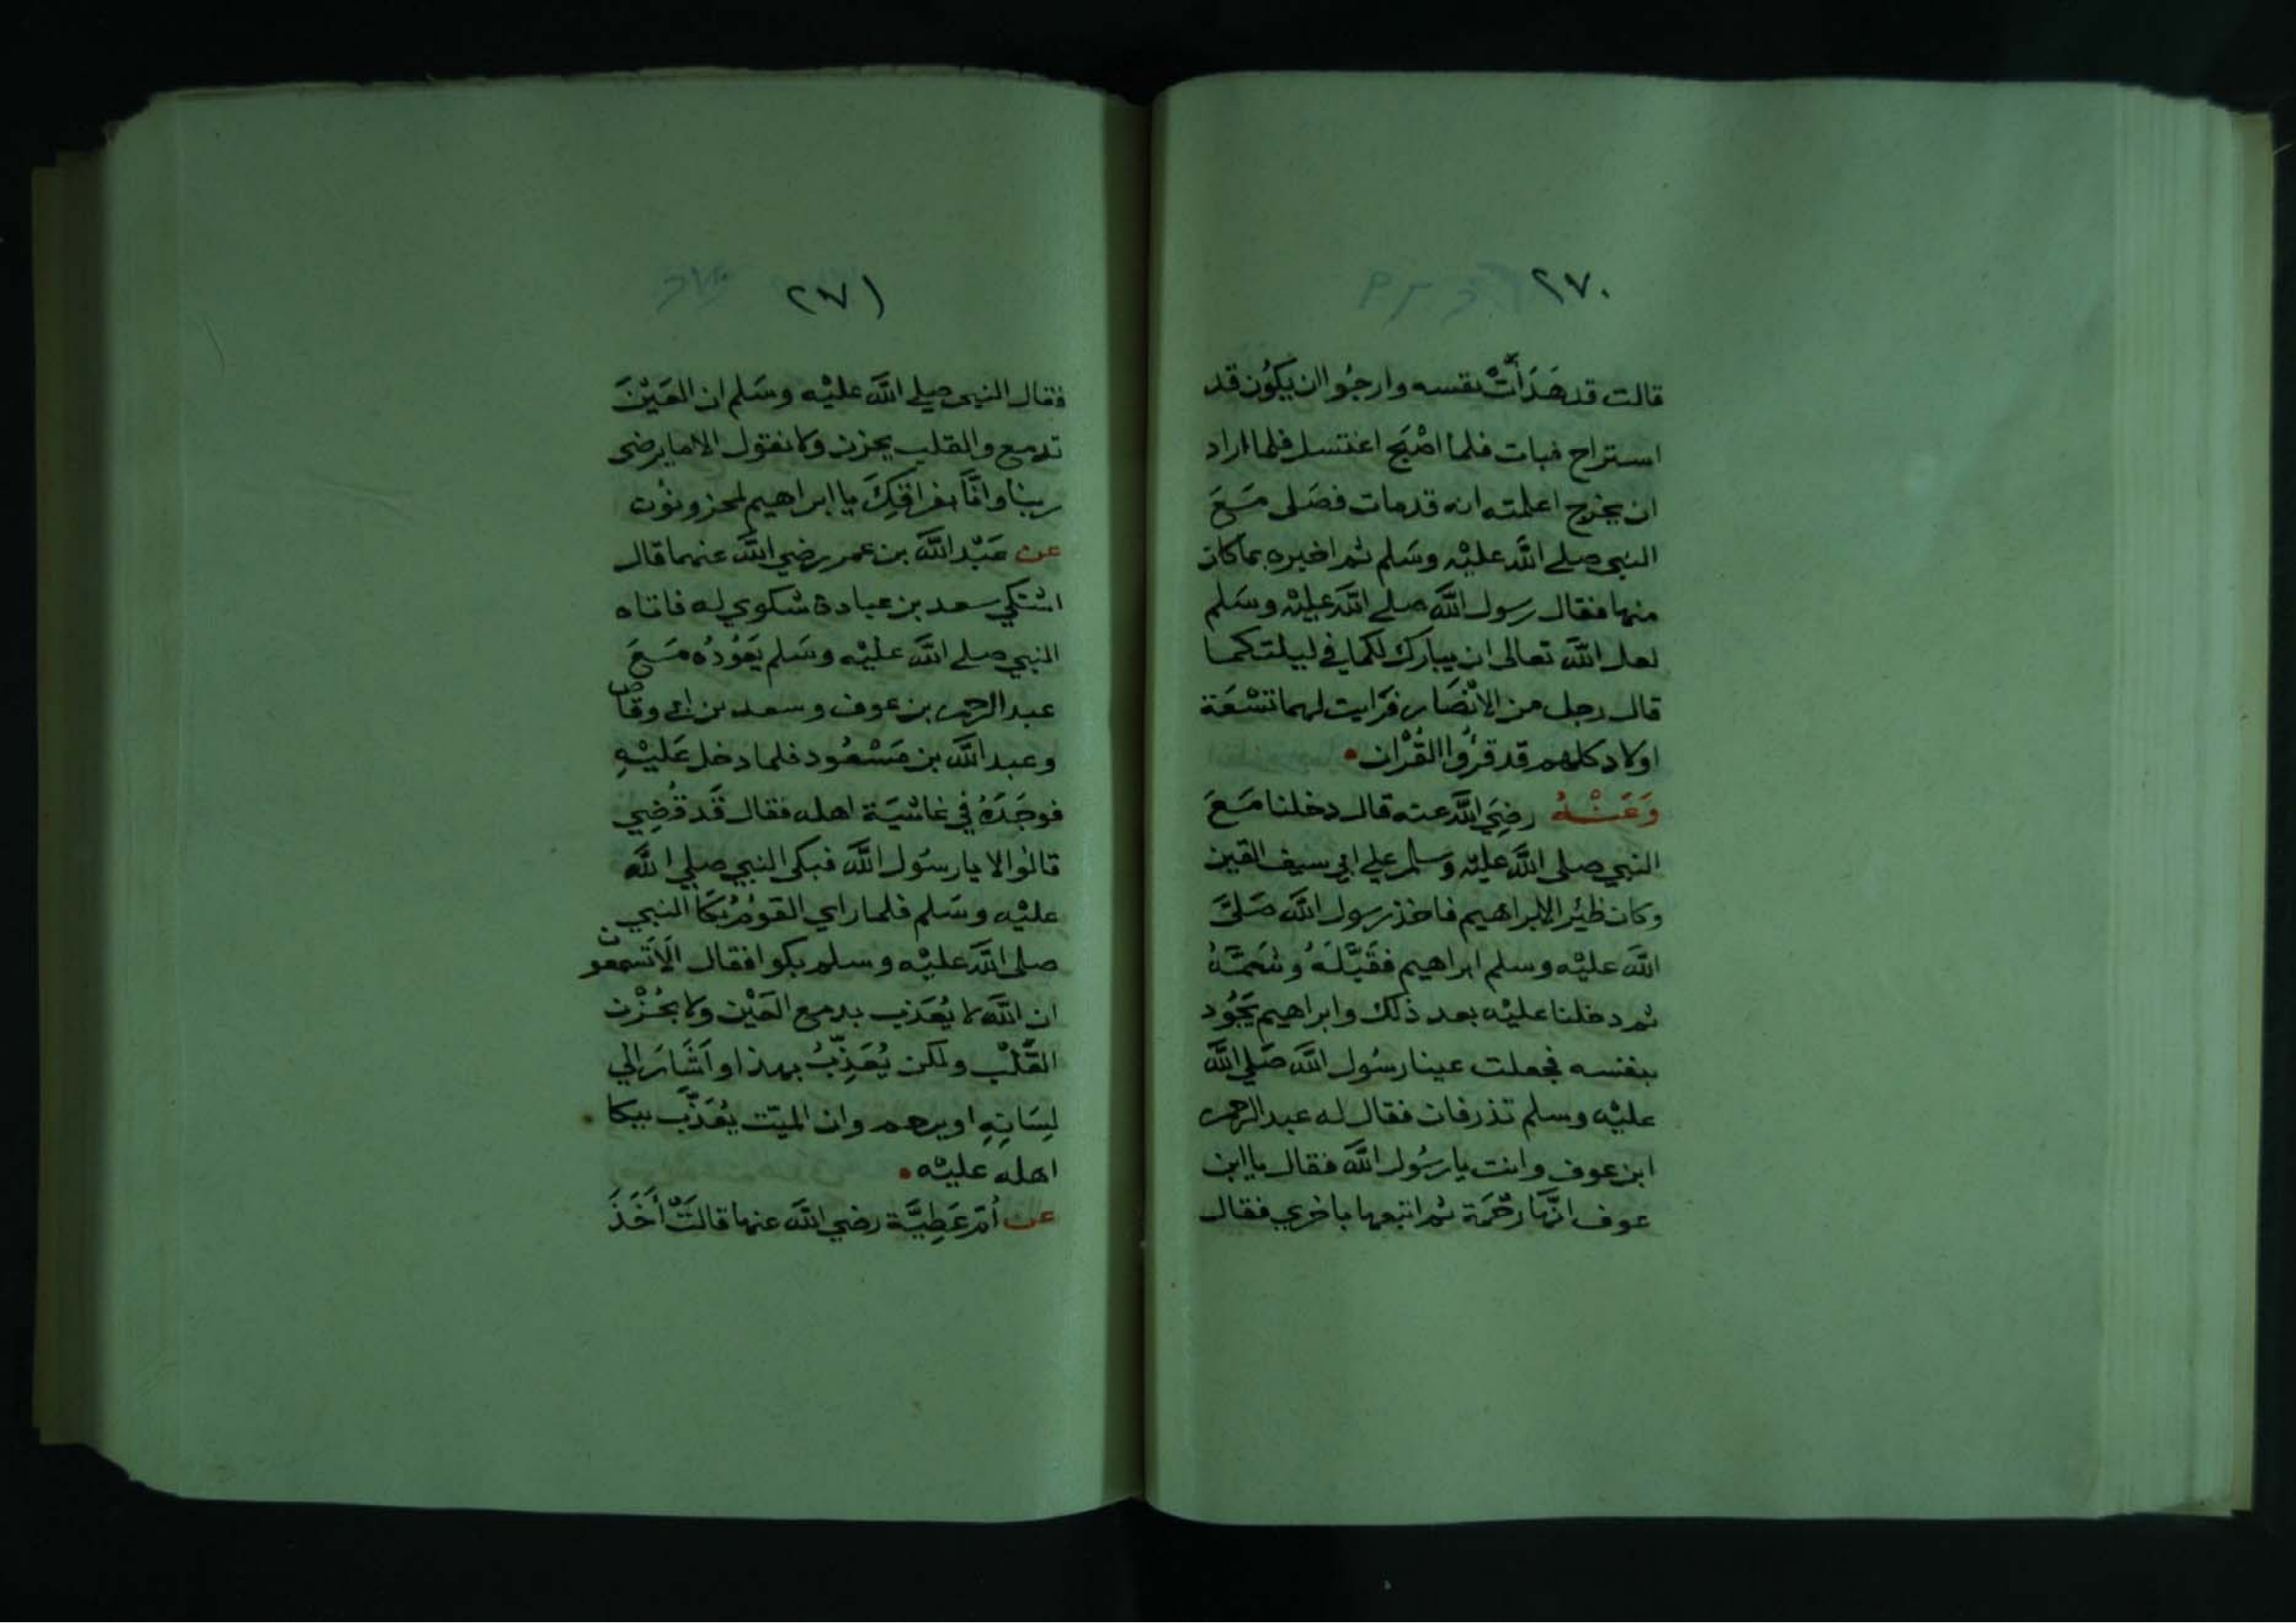 ٢٧٠
قالت قد هَدَأَتْ نفسه وارجُوا ان يكُون قد
استراح فبات فلما اصْبَح اغتسل فلما اراد
ان يخرج اعلمته انه قد مات فصَلى مَعَ
النبي صلى اللّه عليْه وسَلم ثم اخبره بما كان
منها فقال رسول اللّه صلى اللّه عليْه وسَلم
لعل اللّه تعالى ان يبارك لكما في ليلتكما
قال رجل من الانْصَار فرَايت لهما تسْعَة
اولاد كلهم قد قرؤا القُرْان
وَعَنْهُ رضِيَ اللّه عنه قال دخلنا مَعَ
النبي صلى اللّه عليْه وسلم علي ابي سيف القين
وكان ظئر الابراهيم فاخذ رسول اللّه صَلىَّ
اللّه عليْه وسلم ابراهيم فقَبَّلَهُ وشَمَّهُ
ثم دخلنا عليْه بعد ذلك وابراهيم يَجُود
بنفسه فجعلت عينا رسُول اللّه صَلي اللّه
عليْه وسلم تذرفان فقال له عبد الرحمن
ابن عوف وانت يا رسُول اللّه فقال يا ابن
عوف انّها رحْمَة ثم اتبعها باخري فقال
٢٧١
فقال النبي صلى اللّه عليْه وسَلم ان العَيْنَ
تدمع والقلب يحزن ولا نقول الا ما يرضى
ربنا وانَّا بفراقِكَ يا ابراهيم لمحزونوُن
عن عَبْد اللّه بن عمر رضي اللّه عنهما قال
اشتكي سعد بن عبادة شكوي له فاتاه
النبي صلى اللّه عليْه وسَلم يَعُوْدُه مَعَ
عبد الرحمن بن عوف وسعد بن ابي وقاص
وعبد اللّه بن مَسْعُود فلما دخل عَليْهِ
فوجَدَهُ في غاشيَة اهله فقال قَد قُضِي
قالوا لا يا رسُول اللّه فبكى النبي صلي اللّه
عليْه وسَلم فلما راي القوْمُ بُكَا النبي
صلى اللّه عليْه وسلم بكوا فقال الَا تَسْمعون
ان اللّه لا يُعَذب بدمع العَيْن ولا بحُزْن
القَلْب ولكن يُعَذِّبُ بهذا واَشَارَ الي
لِسَانِهِ او يرحم وان الميّت يُعَذَّب ببكا
اهله عليْه
عن أمّ عَطِيَّة رضي اللّه عنها قالَتْ أخَذَ